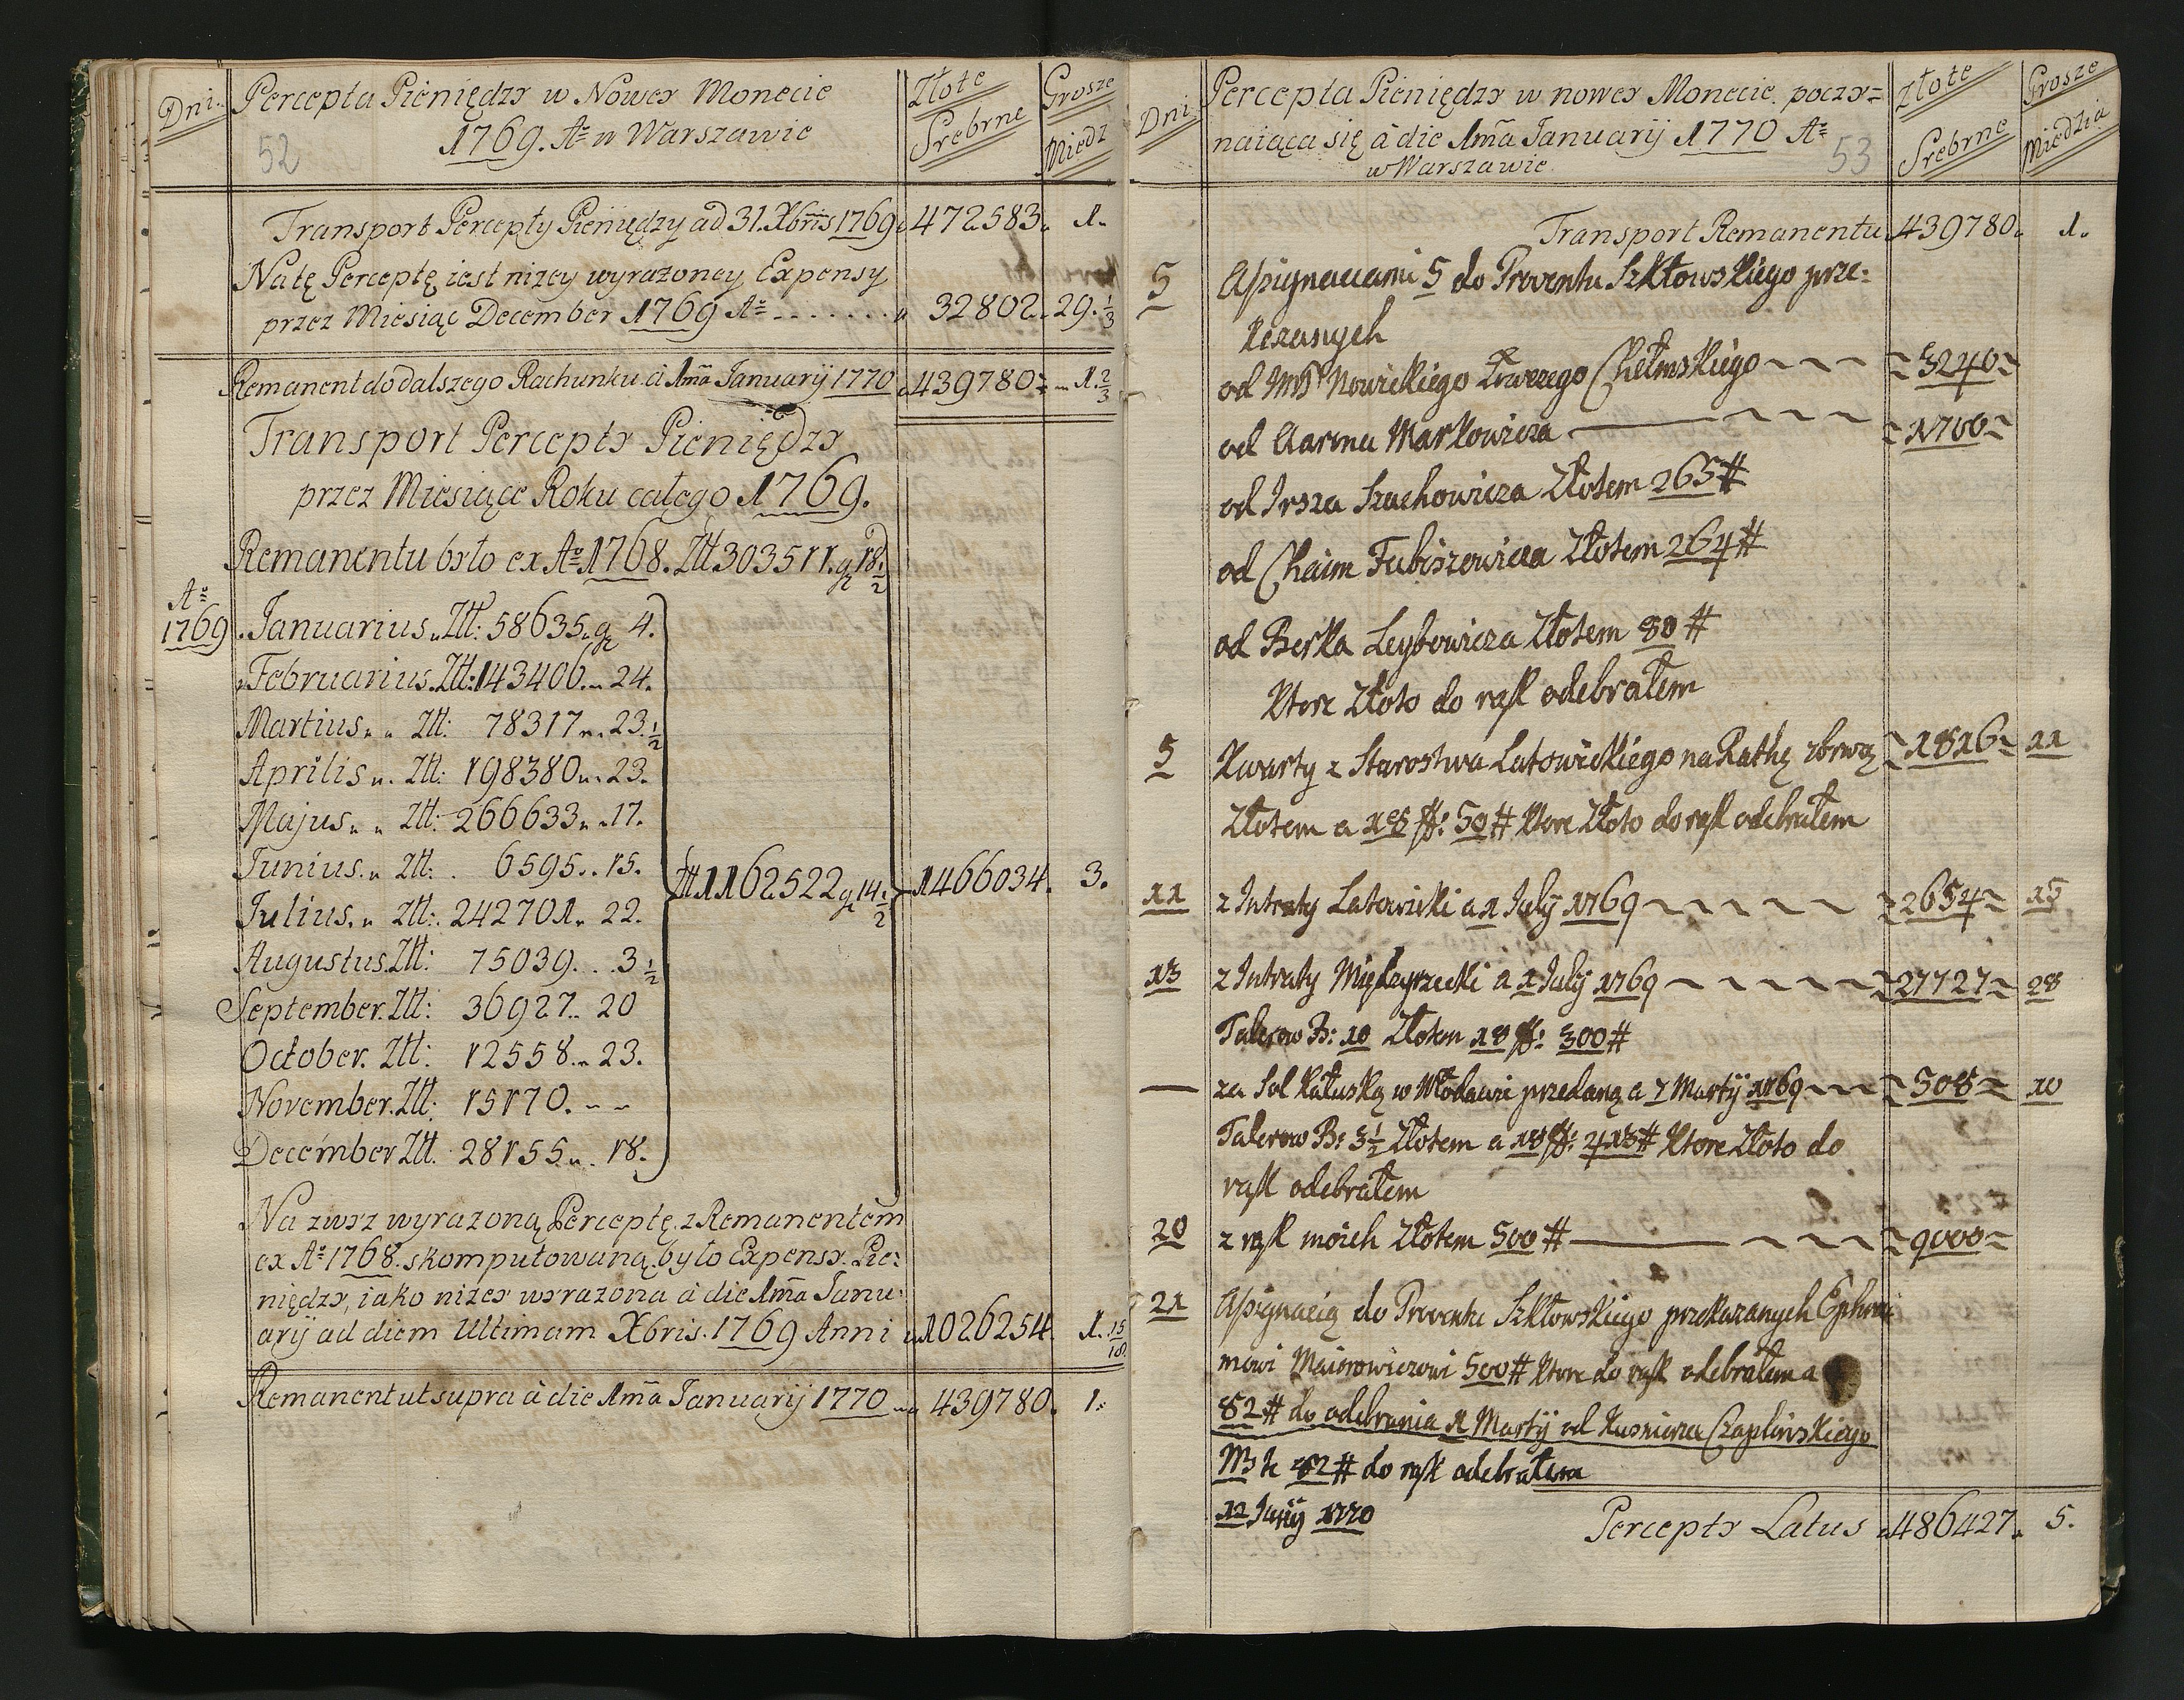 Dni. Percepta Pieniędzy w Nowey Monecie Złote Srebrne Grosze Miedz
52 1769. Aº w Warszawie
Transport Percepty Pieniędzy ad 31. Xbris 1769 472583. 1.
Na tę Perceptę iest niżey wyrażoney Expensy
przez Miesiąc December 1769 Aº . . . . . . . 32802. 29. 1/3
Remanent do dalszego Rachunku à 1mã Januarij 1770 439780. 1. 2/3
Transport Percepty Pieniędzy
przez Miesiące Roku całego 1769.
Remanentu było ex Aº 1768. Złł 303511. gr 18. 1/2
Aº
1769. Januarius. Złł: 58635. gr 4.
Februarius. Złł: 143406. 24.
Martius. Złł: 78317. 23. 1/2
Aprilis. Złł: 198380. 23.
Majus. Złł: 266633. 17.
Junius. Złł: 6595. 15.
Złł 1162522 gr 14 1/2 1466034. 3.
Julius. Złł: 242701. 22.
Augustus. Złł: 75039. 3 1/2
September. Złł: 36927. 20
October. Złł: 12558. 23.
November. Złł: 15170. - -
December Złł. 28155. 18.
Na zwyż wyrażoną Perceptę z Remanentem
ex Aº 1768. skomputowaną, było Expensy Pie:
niędzy, iako niżey wyrażona à die 1mã Janu:
arij ad diem Ultimam Xbris. 1769 Anni 1026254. 1. 15/18.
Remanent ut supra à die 1mã Januarij 1770 439780. 1.
Dni Percepta Pieniędzy w nowey Monecie poczy= Złote Srebrne Grosze Miedzią
naiąca się à die 1mã Januarij 1770 Aº 53
w Warszawie.
Transport Remanentu 439780. 1.
5 Assignacami 5 do Proventu Szkłowskiego prze:
kazanych
od Nowickiego Chełmskiego 3240
od Aarona Markowicza 1700
od Irsza Szachowicza Złotem 265 #
od Chaim Tubiszowicza Złotem 264 #
od Berka Leybowicza Złotem 80 #
Ktore Złoto do rąk odebrałem
5 Kwarty z Starostwa Latowickiego na Rathę 1816 11
Złotem a 18 ff: 50 # Ktore Złoto do rąk odebrałem
11 z Intraty Latowicki a 1 July 1769 2654 15
13 z Intraty Międzyrzecki a 1 July 1769 27727 28
Talerow B: 10 Złotem 18 ff: 300 #
— za Sol Kałuską w Włodawie przedaną a 7 Martij 1769 508 10
Talerow B: 3 1/2 Złotem a 18 ff: 413 # Ktore Złoto do
rąk odebrałem
20 z rąk moich Złotem 500 # 9000
21 Assignacią do Proventu Szkłowskiego przekazanych Ephroi
mowi Maiorowiczowi 500 # Ktore do rąk odebrałem a
82 # do odebrania 1 Martij od Kusnierza Czaplinskiego
82 # do rąk odebrałem
12 1770
Percepty Latus 486427. 5.